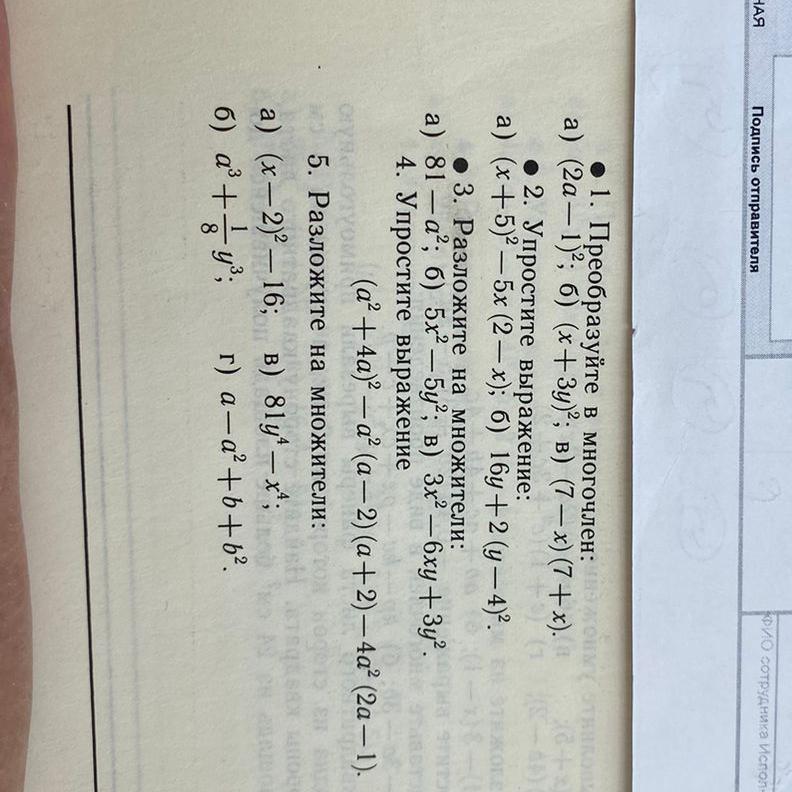 НАЯ
Подпись отправителя
ФИО сотрудника Испол
● 1. Преобразуйте в многочлен:
а) (2a — 1)²; б) (x + 3y)²; в) (7 — x) (7 + x).
● 2. Упростите выражение:
а) (x + 5)² — 5x (2 — x); б) 16y + 2 (y — 4)².
● 3. Разложите на множители:
а) 81 — a²; б) 5x² — 5y²; в) 3x² — 6xy + 3y².
4. Упростите выражение
(a² + 4a)² — a² (a — 2) (a + 2) — 4a² (2a — 1).
5. Разложите на множители:
а) (x — 2)² — 16; в) 81y⁴ — x⁴;
б) a³ + 1/8 y³; г) a — a² + b + b².